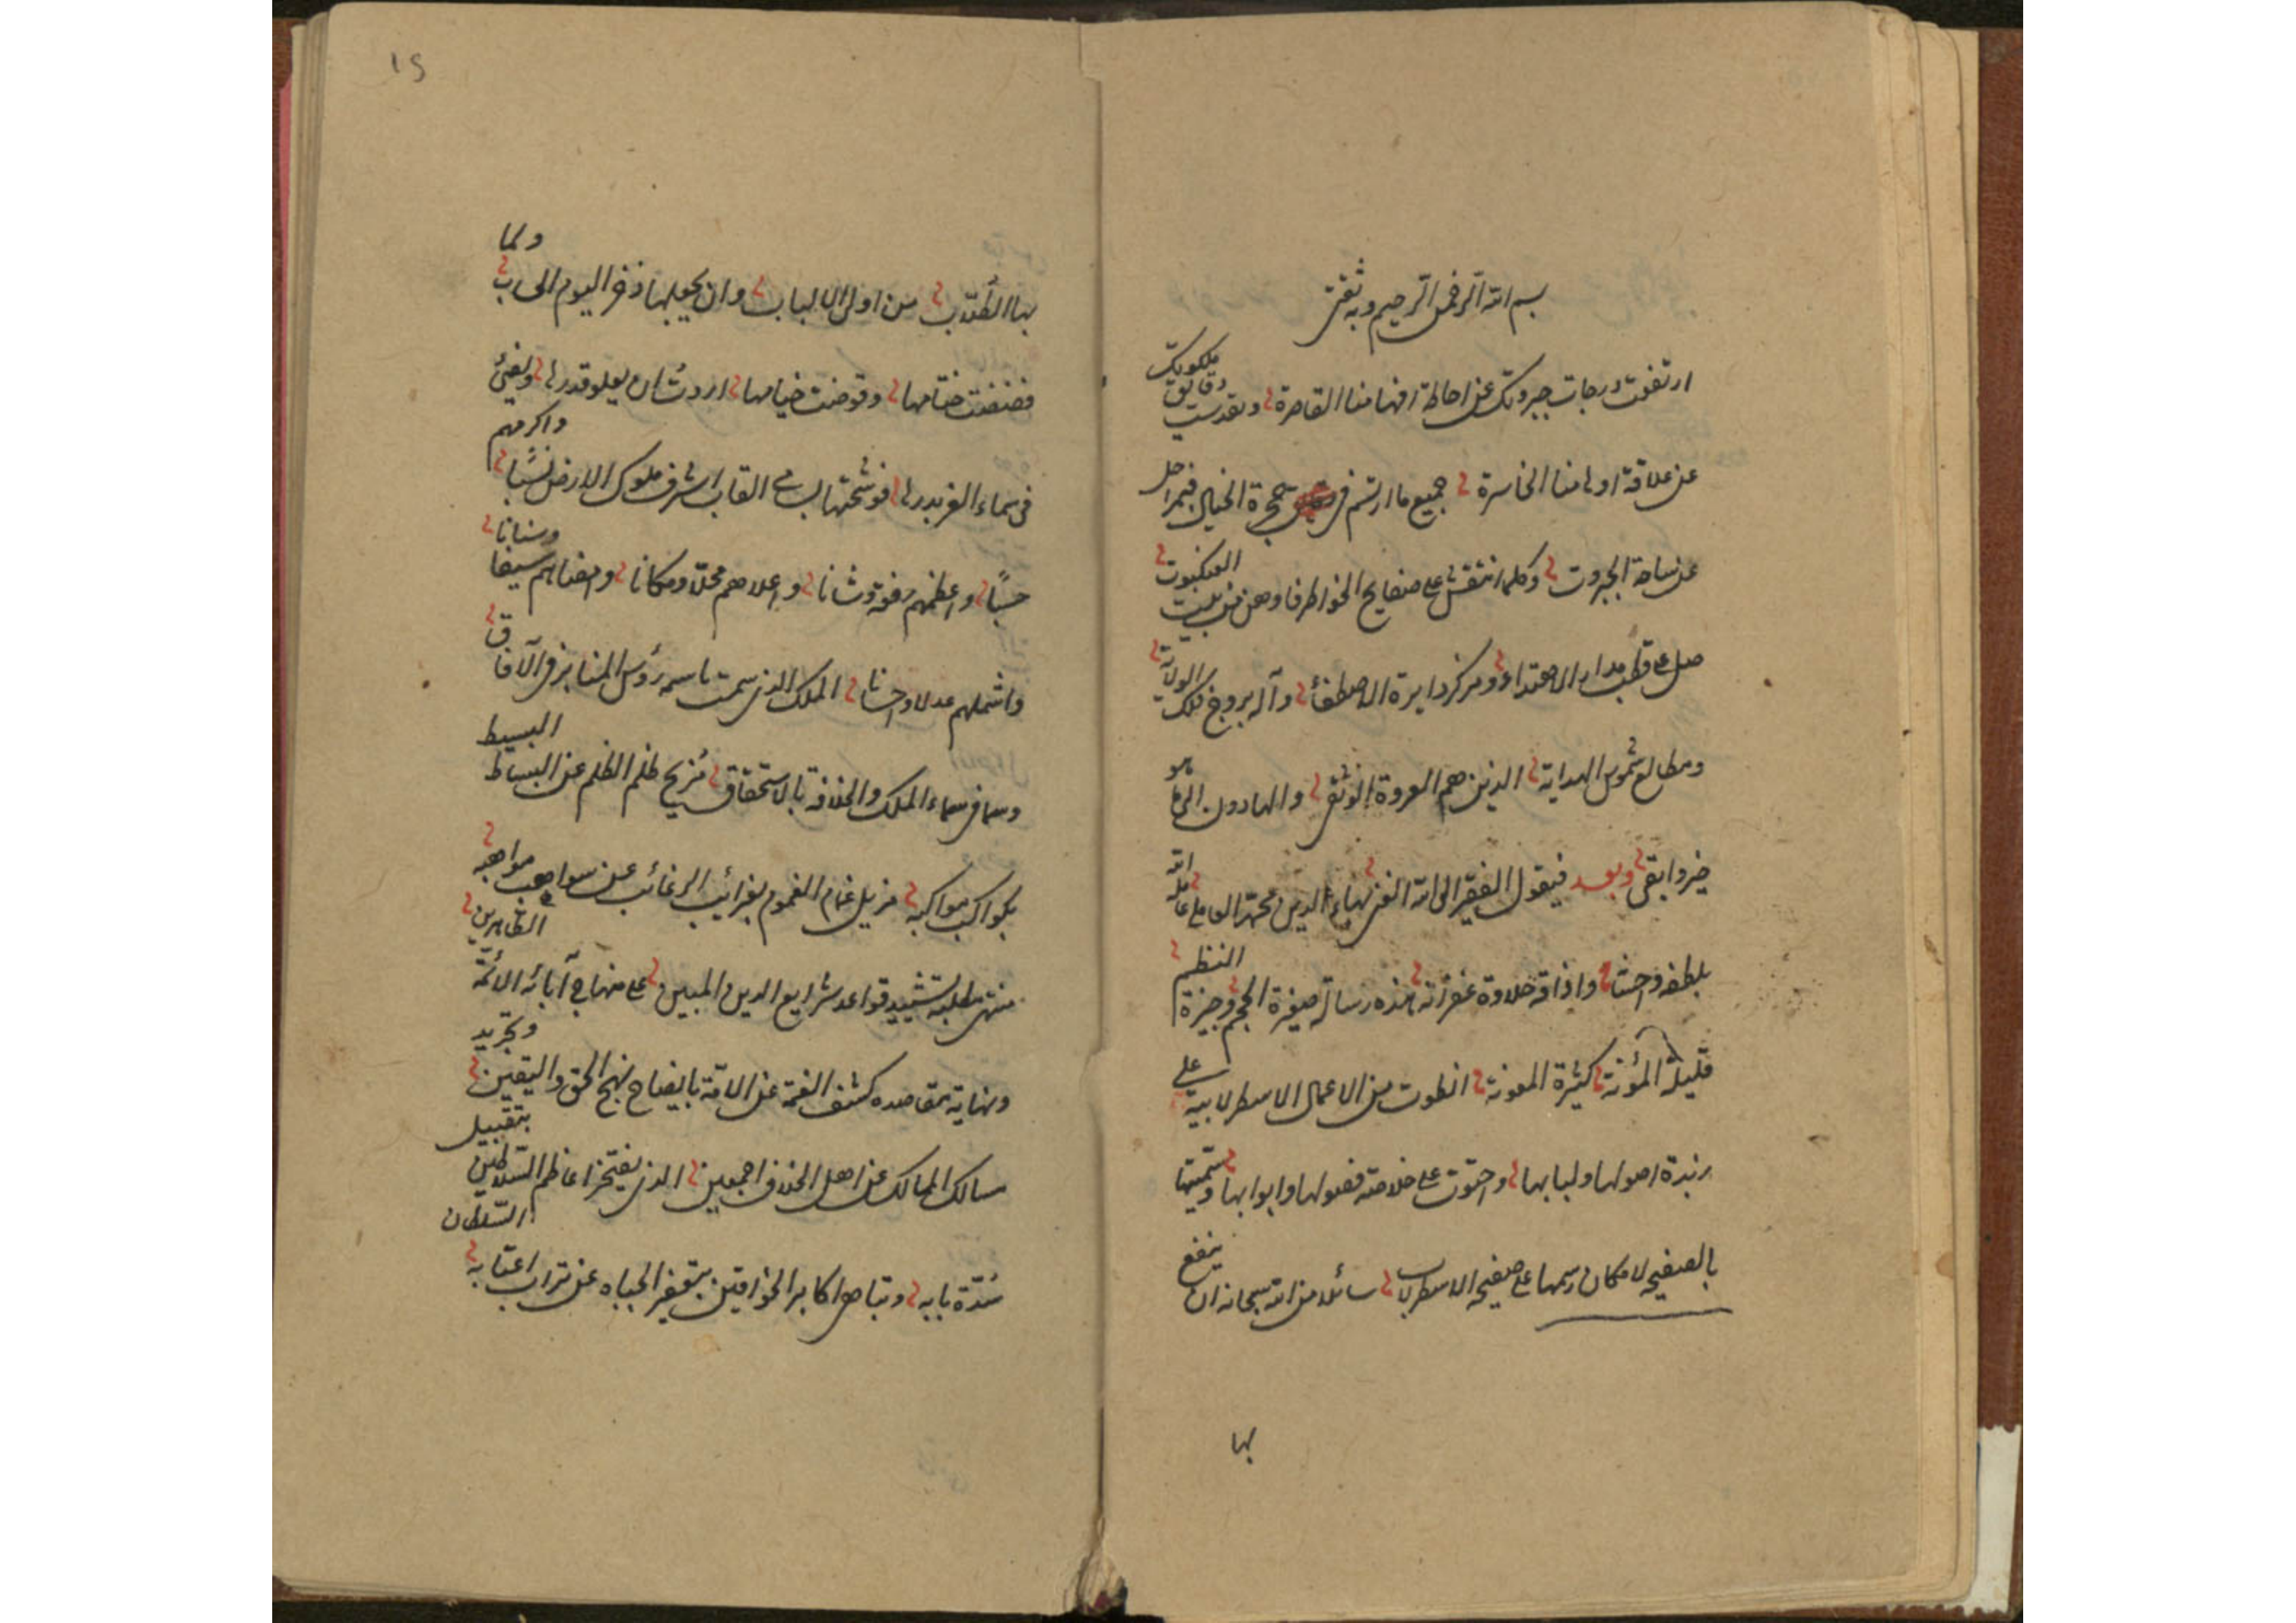 بسم الله الرحمن الرحيم وبه ثقتى
ارتفعت درجات جبروتك عن احاطة افهامنا القاصرة وتقدست دقايق ملكوتك
عن علاقة اوهامنا الخاسرة جميع ما ارتسم فى حجرة الخيال فبمراحل
عن ساحة الجبروت وكلما انتقش على صفايح الخواطر فاوهن من بيت العنكبوت
صل على قطب مدار الاهتداء ومركز دايرة الاصطفاء وآله بروج فلك الولاية
ومطالع شموس الهداية الذين هم العروة الوثقى والهادون الى ما هو
خير وابقى وبعد فيقول الفقير الى الله الغنى بهاء الدين محمد العاملى عامله الله
بلطفه واحسانه واذاقه حلاوة غفرانه هذه رسالة صغيرة الحجم وجيزة النظم
قليلة المؤنة كثيرة المعونة انطوت من الاعمال الاسطرلابية على
زبدة اصولها ولبابها واحتوت على خلاصة فصولها وابوابها وسميتها
بالصفيحه لامكان رسمها على صفيحه الاسطرلاب سائلا من الله سبحانه ان ينفع
بها
١٥
بها الطلاب من اولى الالباب وان يجعلها ذخرا ليوم الحساب ولما
فضضت ختامها وقوضت خيامها اردت ان يعلو قدرها ويضئ
فى سماء العز بدرها فوشحتها بسامى القاب اشرف ملوك الارض نسبا واكرمهم
حسبا واعظمهم رفعة وشانا واعلاهم محلا ومكانا وامضاهم سيفا وسنانا
واشملهم عدلا واحسانا الملك الذى سمت باسمه رؤس المنابر فى الآفاق
وسما فى سماء الملك والخلافة بالاستحقاق مزيح ظلم الظلم عن البساط البسيط
بكواكب مواكبه مزيل غمام الغموم بغرائب الرغائب من سواهب مواهبه
منتهى مطلبه تشييد قواعد شرايع الدين المبين على منهاج آبائه الائمة الطاهرين
ونهاية مقاصده كشف الغمة عن الامة بايضاح نهج الحق واليقين وتجريد
مسالك الممالك عن اهل الخلاف اجمعين الذى يفتخر اعاظم السلاطين بتقبيل
سدة بابه وتباهى اكابر الخواقين بتعفير الجباه على تراب اعتابه السلطان